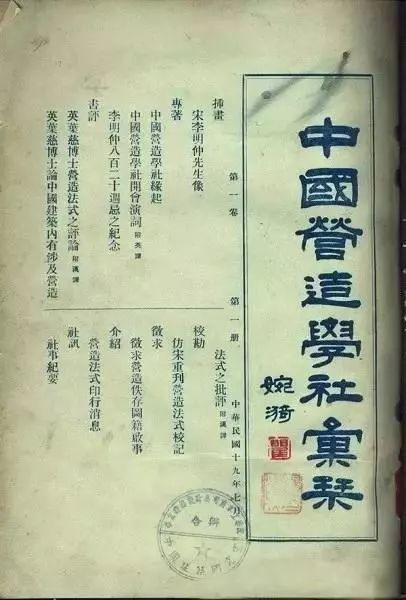 中國營造學社彙栞
婉漪
第一卷 第一册
中華民國十九年七月
插畫
宋李明仲先生像
專著
中國營造學社緣起
中國營造學社開會演詞 附英譯
李明仲八百二十週忌之紀念
書評
英葉慈博士營造法式之評論 附漢譯
英葉慈博士論中國建築內有涉及營造
法式之批評 附漢譯
校勘
仿宋重刋營造法式校記
徵求
徵求營造佚存圖籍啟事
介紹
營造法式印行消息
社訊
社事紀要